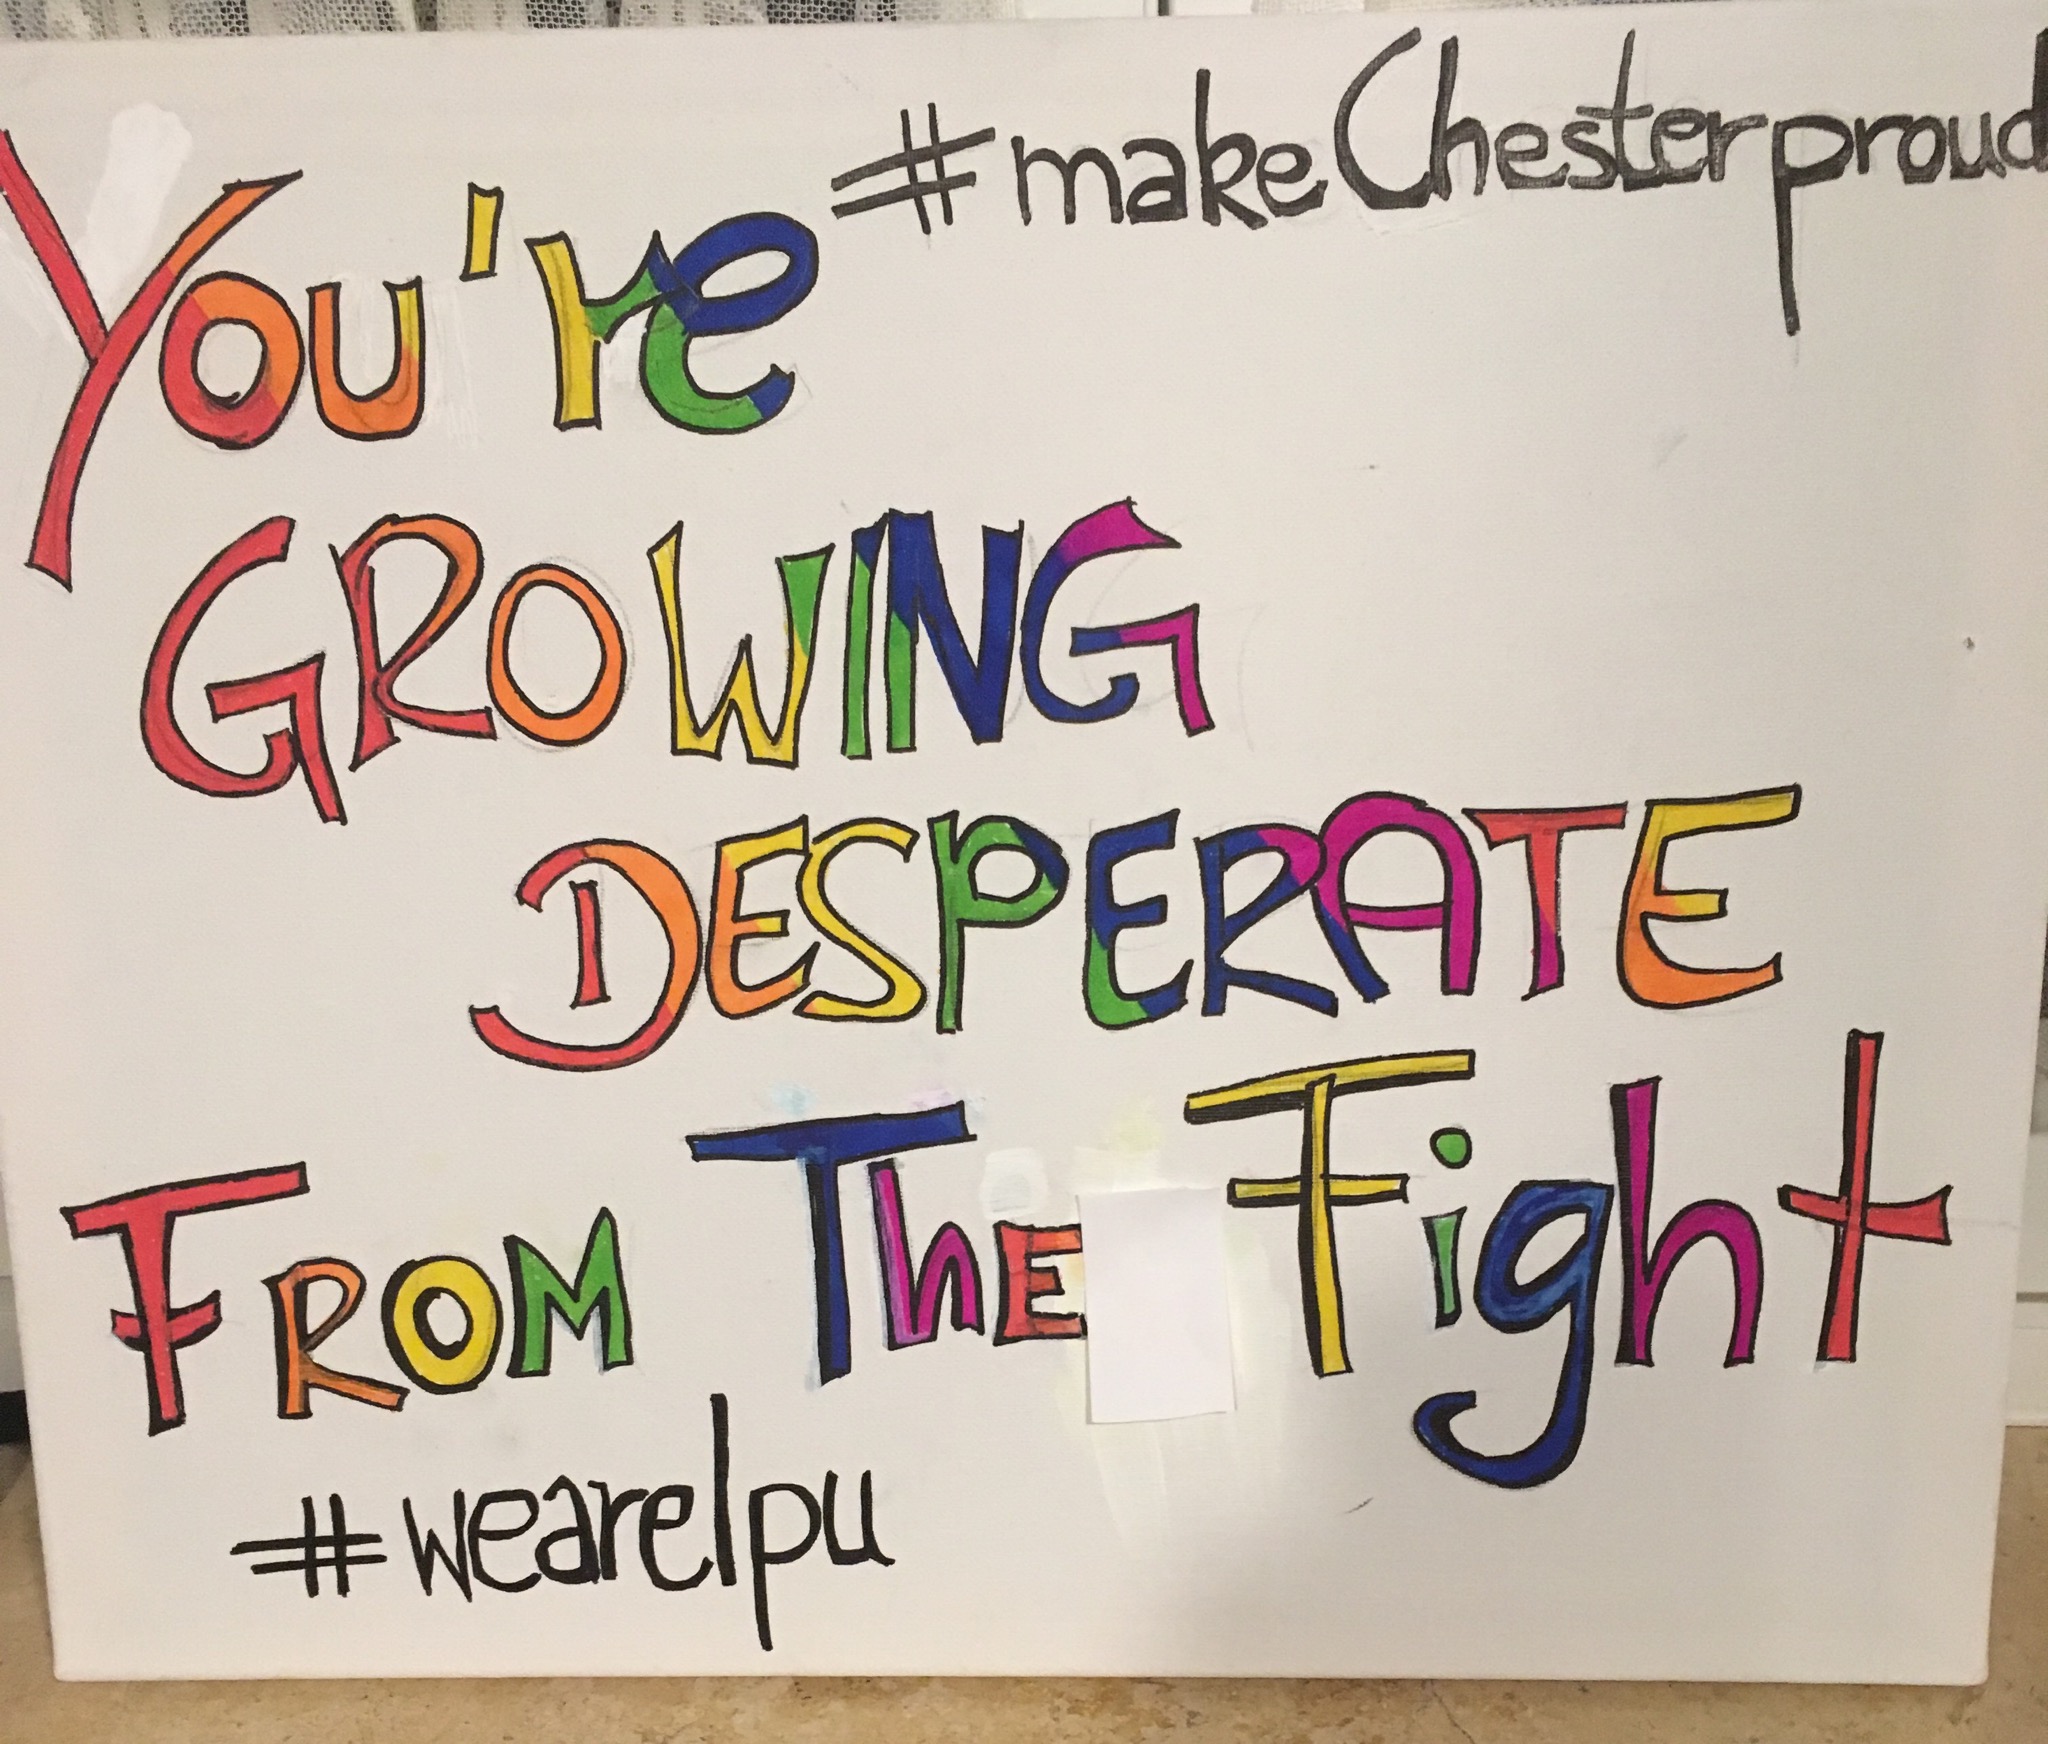 #makeChesterproud
You're
GROWING
DESPERATE
FROM The Fight
#wearelpu